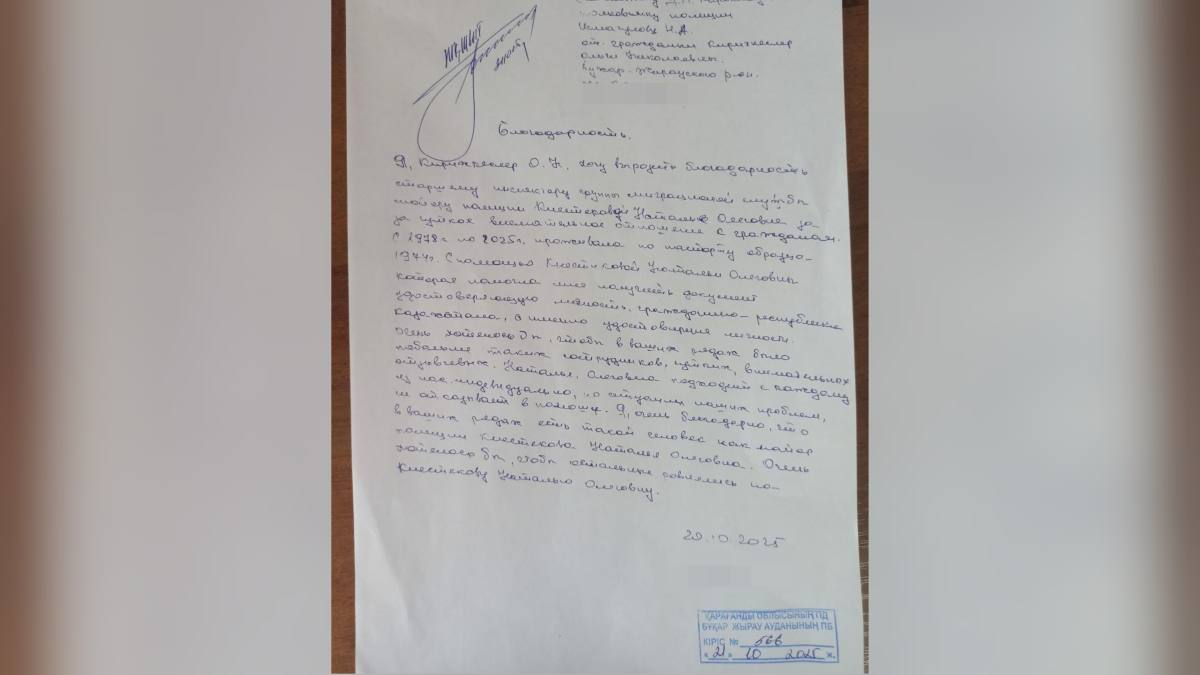 полковнику полиции
Исмагулову Н.А.
от гражданки Киричкеслер
Ольги Николаевны.
Бухар-Жырауского р-он.
Благодарность.
Я, Киричкеслер О.Н. хочу выразить благодарность
старшему инспектору группы миграционой службы
майору полиции Клестековой Наталье Олеговне за-
за чуткое внемательное отношение с гражданам.
С 1978г по 2025г. проживала по паспорту образца-
1974г. С помощью Клестековой Натальи Олеговны
которая помогла мне получить документ
удостоверяющую личность, гражданина- республики
Казахстана, а именно удостоверения личности.
Очень хотелось бы, чтобы в ваших рядах было
побольше таких сотрудников, чутких, внемательных
отзывчевых. Наталья Олеговна подходит с каждому
из нас индевидуально, по ситуации наших проблем,
не отсазывает в помощи. Я, очень благодарна, что
в ваших рядах есть такой человек как майор
полиции Клестекова Наталья Олеговна. Очень
хотелось бы, чтобы остальные ровнялись на-
Клестекову Наталью Олеговну.
2025
ҚАРАҒАНДЫ ОБЛЫСЫНЫҢ ПД
БҰҚАР ЖЫРАУ АУДАНЫНЫҢ ПБ
КІРІС № 566
«21» 10 2025 ж.